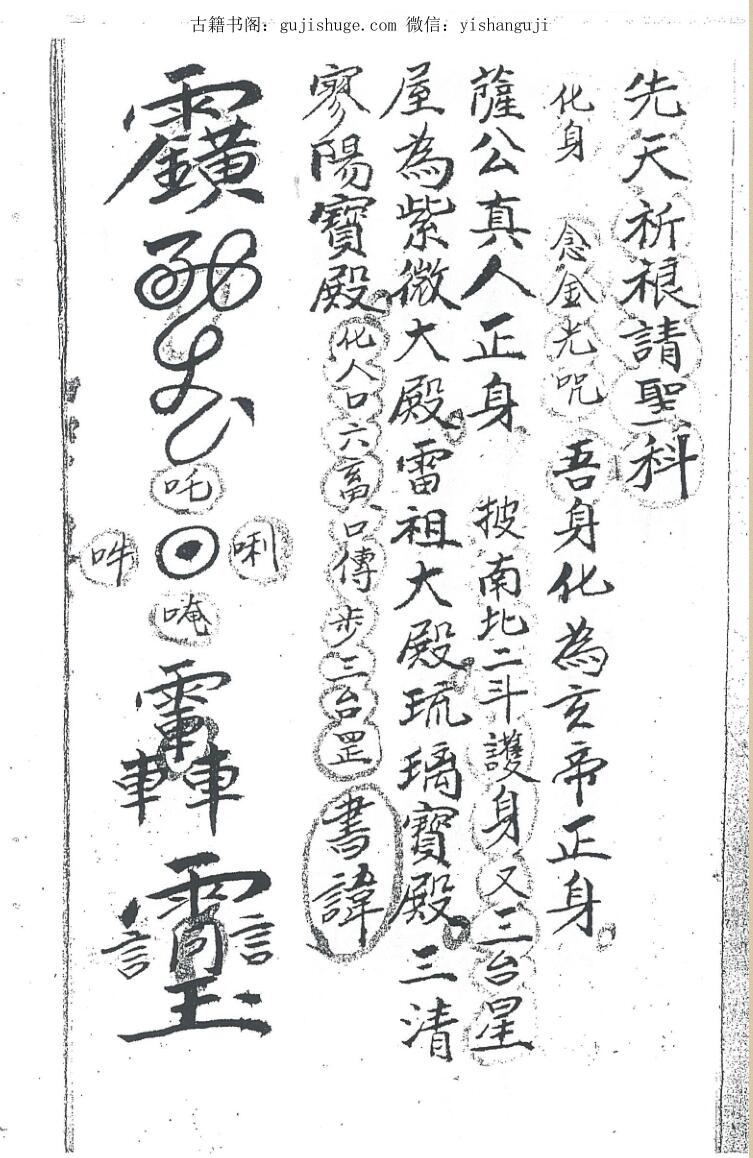 古籍书阁：gujishuge.com 微信：yishanguji
先天祈禳請聖科
化身 念金光咒 吾身化為玄帝正身。
薩公真人正身 披南北二斗護身又三台星
屋為紫微大殿。雷祖大殿。琉璃寶殿。三清
寥陽寶殿。化人口六畜口傳步三台罡 書諱
吒
吽 唎
唵